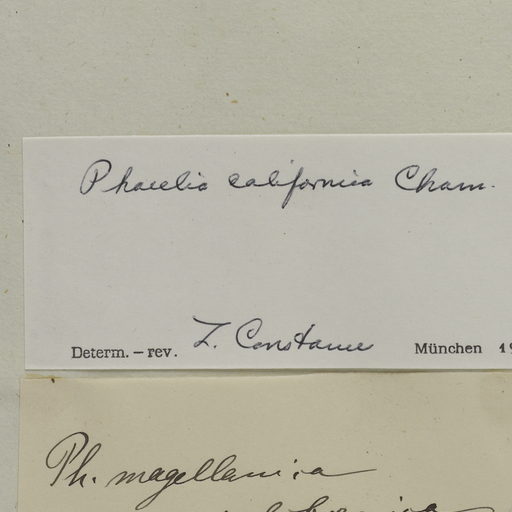 Phacelia californica Cham.
Determ. – rev. L. Constance München 19
Ph. magellanica